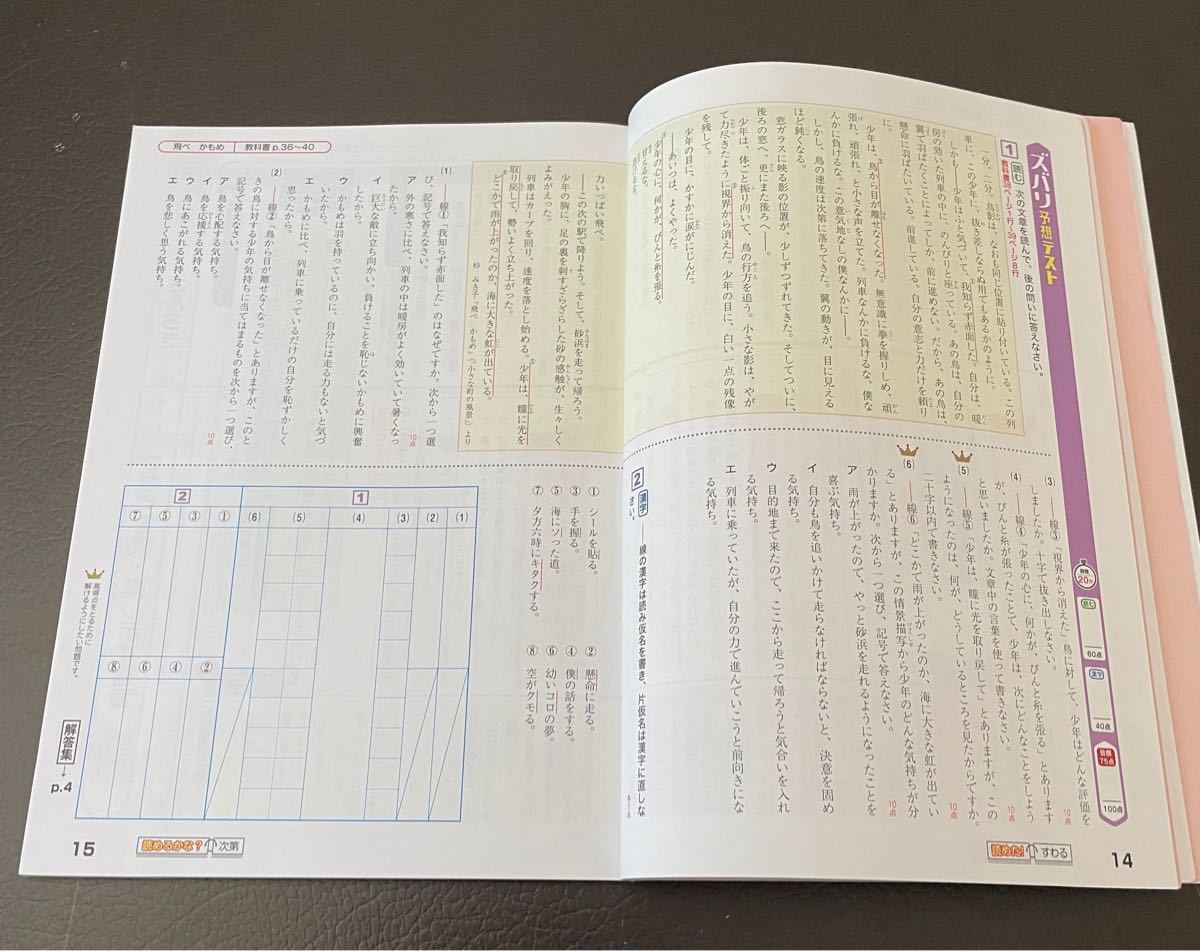 ズバリ予想テスト
時間
20分
読む
60点
漢字
40点
目標
75点
100点
1
読む
次の文章を読んで、後の問いに答えなさい。
教科書38ページ1行～39ページ8行
一分、二分、鳥影は、なおも同じ位置に貼り付いている。この列
車に、この少年に、抜き差しならぬ用でもあるかのように。
しかも、――少年はふと気づいて、我知らず赤面した。自分は、暖
房の効いた列車の中に、のんびりと座っている。あの鳥は、自分の
翼で羽ばたくことによってしか、前に進めない。だから、あの鳥は、
懸命に羽ばたいている。前進している。自分の意志と力だけを頼り
に。
少年は、鳥から目が離せなくなった。無意識に拳を握りしめ、頑
張れ、頑張れ、と小さな声を立てた。列車なんかに負けるな、僕な
んかに負けるな。この意気地なしの僕なんかに――。
しかし、鳥の速度は次第に落ちてきた。翼の動きが、目に見える
ほど鈍くなる。
窓ガラスに映る影の位置が、少しずつずれてきた。そしてついに、
後ろの窓へ、更にまた後ろへ――。
少年は、体ごと振り向いて、鳥の行方を追う。小さな影は、やが
て力尽きたように視界から消えた。少年の目に、白い一点の残像
を残して。
少年の目に、かすかに涙がにじんだ。
――あいつは、よくやった。
少年の心に、何かが、ぴんと糸を張る。
甘ったるな。
力いっぱい飛べ。
――この次の駅で降りよう。そして、砂浜を走って帰ろう。
少年の胸に、足の裏を刺すざらざらした砂の感触が、生々しく
よみがえった。
列車はカーブを回り、速度を落とし始める。少年は、瞳に光を
取り戻して、勢いよく立ち上がった。
どこかで雨が上がったのか、海に大きな虹が出ている。
杉 みき子「飛べ かもめ」〈「小さな町の風景」〉より
(1) ――線①「我知らず赤面した」のはなぜですか。次から一つ選
び、記号で答えなさい。
ア 外の寒さに比べ、列車の中は暖房がよく効いていて暑くなっ
たから。
イ 巨大な敵に立ち向かい、負けることを恥じないかもめに興奮
したから。
ウ かもめは羽を持っているのに、自分には走る力もないと気づ
いたから。
エ かもめに比べ、列車に乗っているだけの自分を恥ずかしく
思ったから。
10点
(2) ――線②「鳥から目が離せなくなった」とありますが、このと
きの鳥に対する少年の気持ちに当てはまるものを次から一つ選び、
記号で答えなさい。
10点
ア 鳥を心配する気持ち。
イ 鳥を応援する気持ち。
ウ 鳥にあこがれる気持ち。
エ 鳥を悲しく思う気持ち。
(3) ――線③「視界から消えた」鳥に対して、少年はどんな評価を
しましたか。十字で抜き出しなさい。
10点
(4) ――線④「少年の心に、何かが、ぴんと糸を張る」とあります
が、ぴんと糸が張ったことで、少年は、次にどんなことをしよう
と思いましたか。文章中の言葉を使って書きなさい。
10点
(5) ――線⑤「少年は、瞳に光を取り戻して」とありますが、この
ようになったのは、何が、どうしているところを見たからですか。
二十字以内で書きなさい。
10点
(6) ――線⑥「どこかで雨が上がったのか、海に大きな虹が出てい
る」とありますが、この情景描写から少年のどんな気持ちが分
かりますか。次から一つ選び、記号で答えなさい。
10点
ア 雨が上がったので、やっと砂浜を走れるようになったことを
喜ぶ気持ち。
イ 自分も鳥を追いかけて走らなければならないと、決意を固め
る気持ち。
ウ 目的地まで来たので、ここから走って帰ろうと気合いを入れ
る気持ち。
エ 列車に乗っていたが、自分の力で進んでいこうと前向きにな
る気持ち。
2
漢字
――線の漢字は読み仮名を書き、片仮名は漢字に直しな
さい。
各5点
① シールを貼る。
② 懸命に走る。
③ 手を握る。
④ 僕の話をする。
⑤ 海にソった道。
⑥ 幼いコロの夢。
⑦ 夕方六時にキタクする。
⑧ 空がクモる。
読めた!
すわる
14
飛べ かもめ
教科書 p.36～40
1
(1)
(2)
(3)
(4)
(5)
(6)
2
①
③
⑤
⑦
②
④
⑥
⑧
高得点をとるために
解けるようにしたい問題です。
解答集→p.4
15
読めるかな?
次第